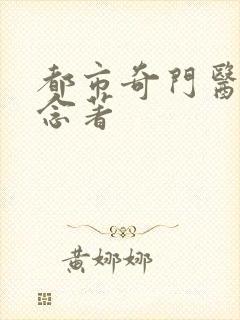 都市奇門醫
念著
黃娜娜